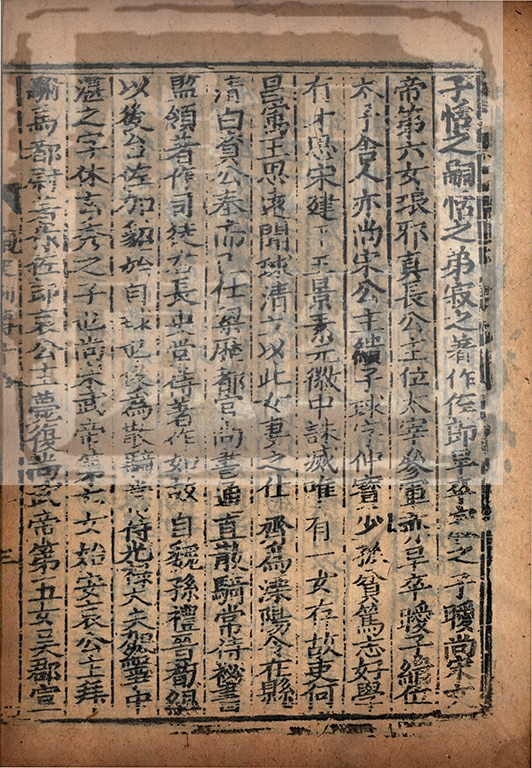 子恬之嗣恬之弟寂之著作佐郎早卒之子曖尚宋文
帝第六女琅邪貞長公主位太宰參軍亦早卒曖子繢位
太子舍人亦尚宋公主繢子球字仲寶少孫貧篤志好學
有才思宋建平王景素元徽中誅滅唯有一女存故吏何
昌㝢王思遠聞球清立以此女妻之仕齊爲溧陽令在縣
清白資公奉而已仕梁歷都官尚書通直散騎常侍祕書
監領著作司徒左長史常侍著作如故自魏孫禮晉荀組
以後台佐加貂始自球也後爲散騎常侍光祿大夫加給事中
湛之字休玄秀之子也尚宋武帝第六女始安哀公主拜
駙馬都尉著作佐郎哀公主薨復尚武帝第五女吳郡宣